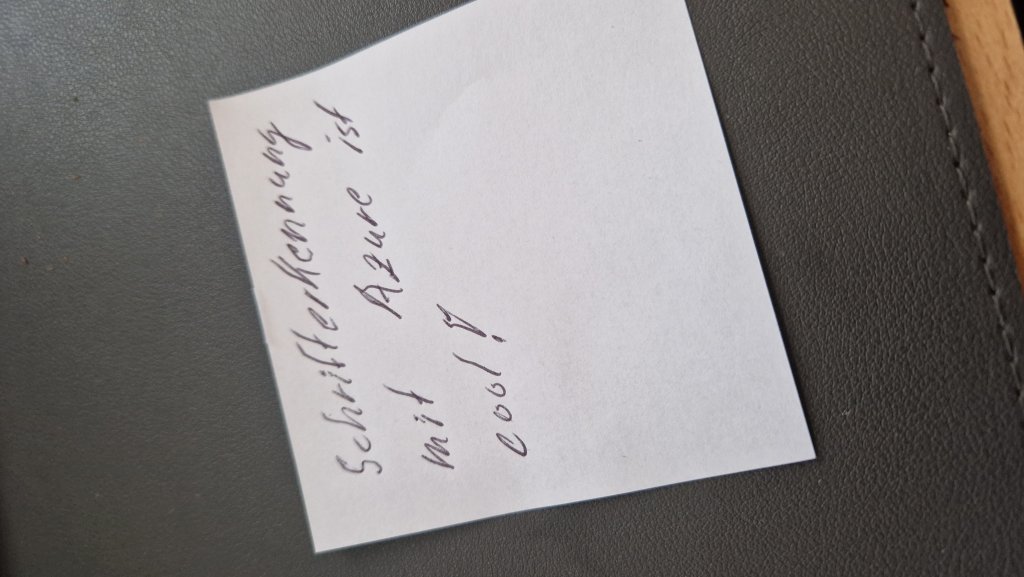 Schrifterkennung
mit Azure ist
cool!